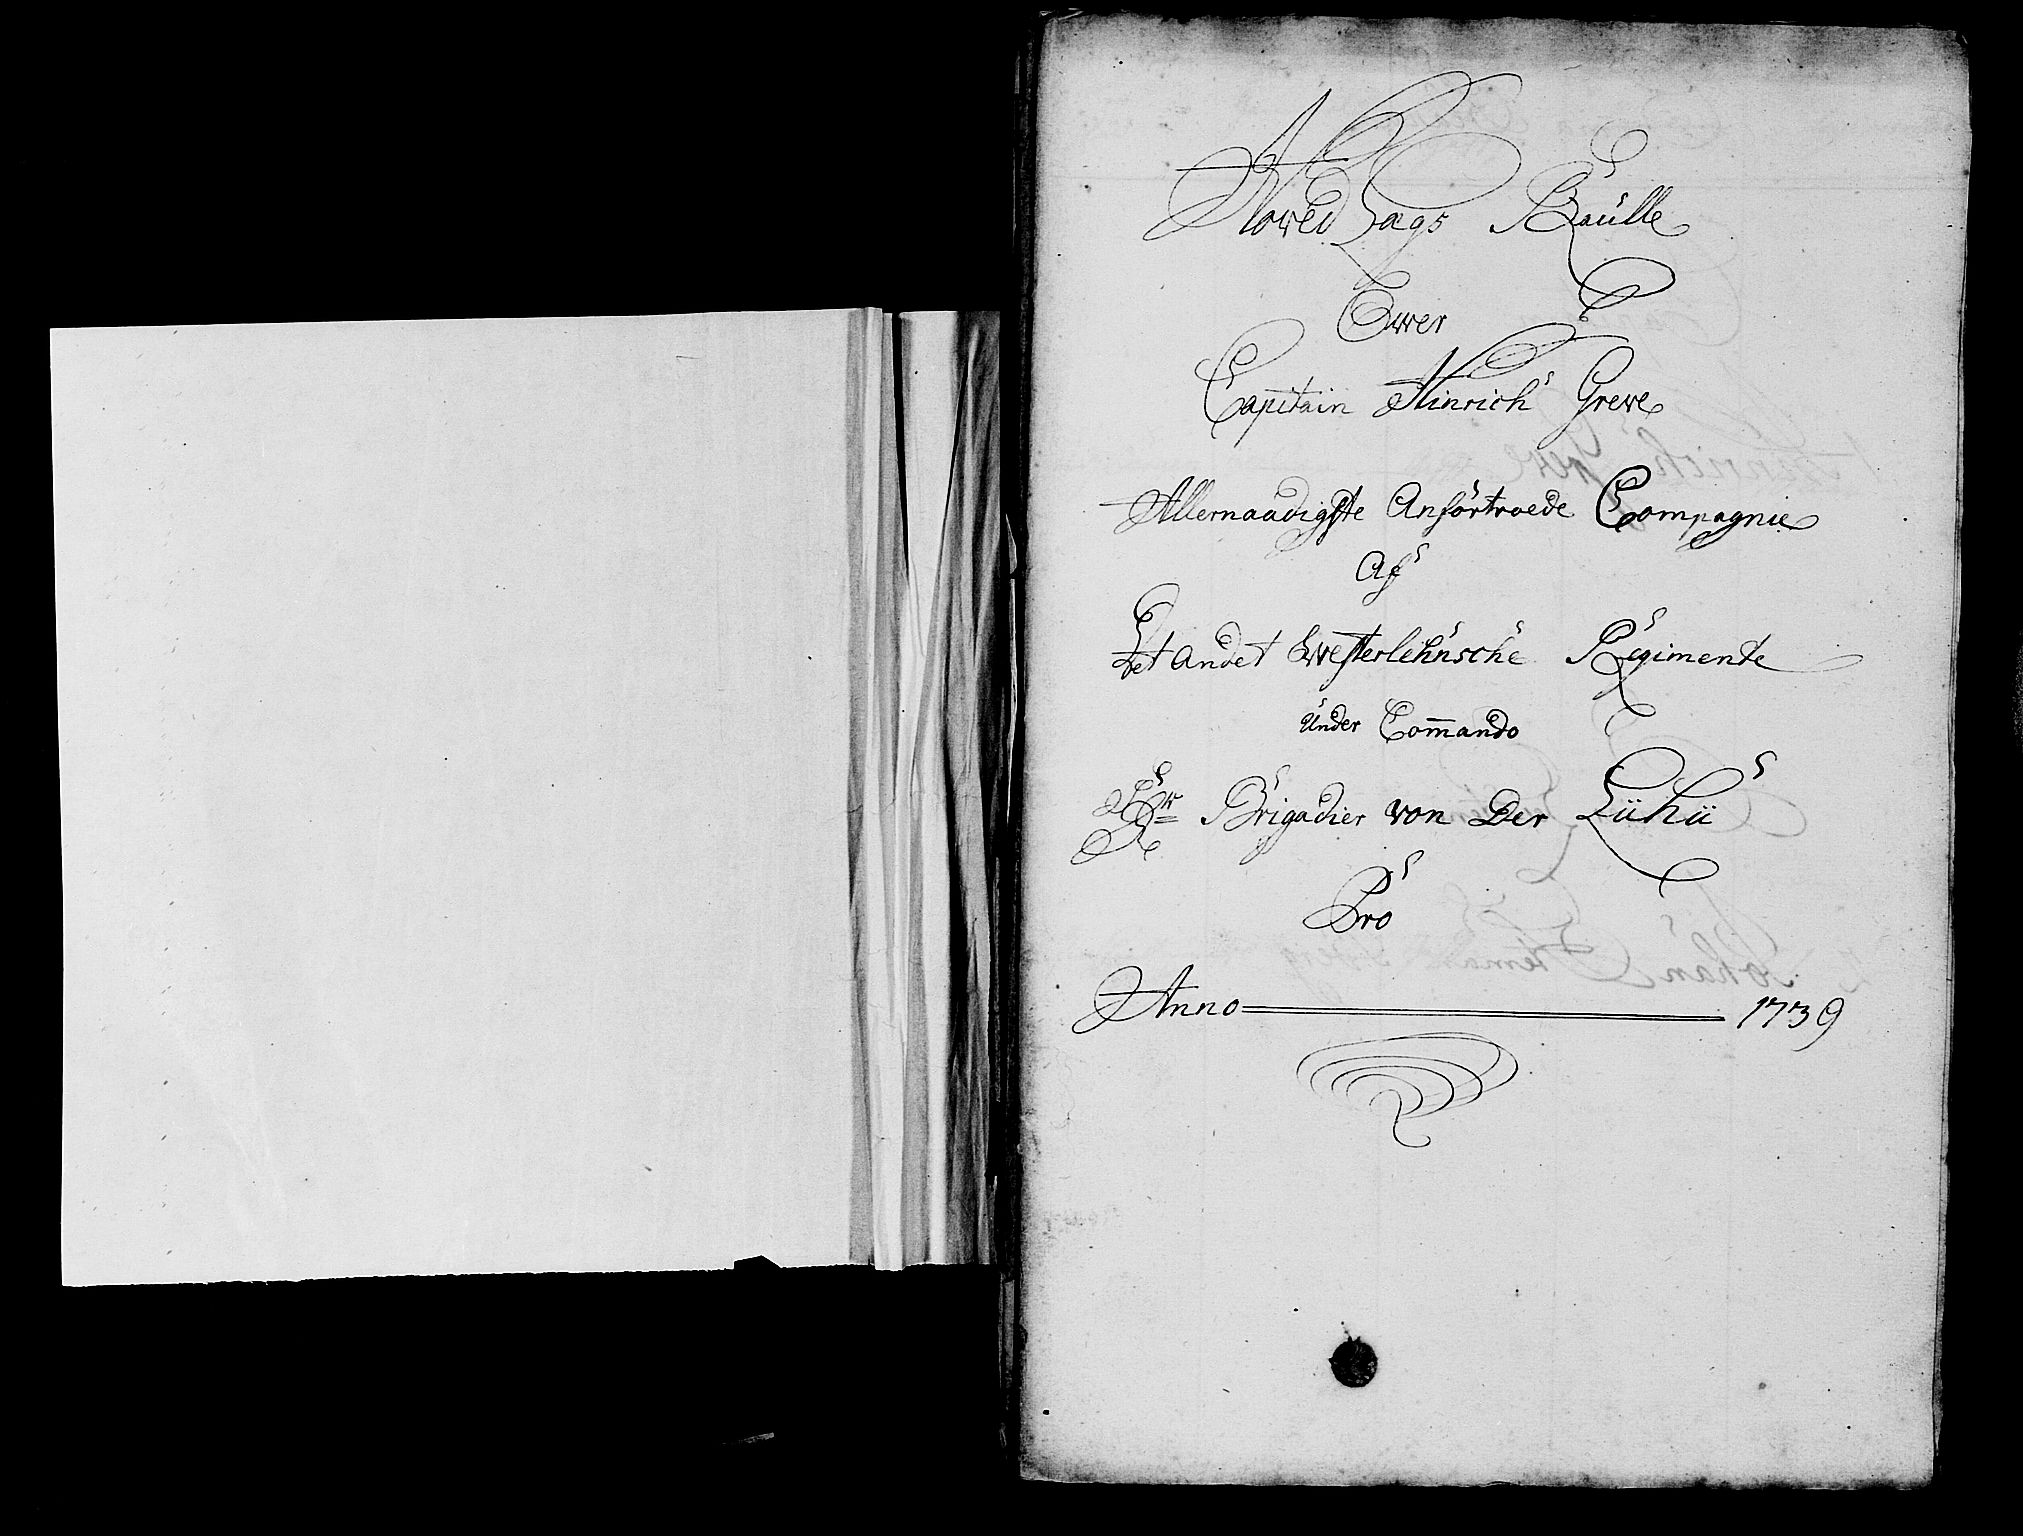 Hoved Lags Raülle
Ower
Capitain Hinrich Greve
Allernaadigste Anfortroede Compagnie
Af
Det Andet Westerlehnsche Regimente
Under Com̄ando
Hr Brigadier von Der Lühü
Pro
Anno 1739